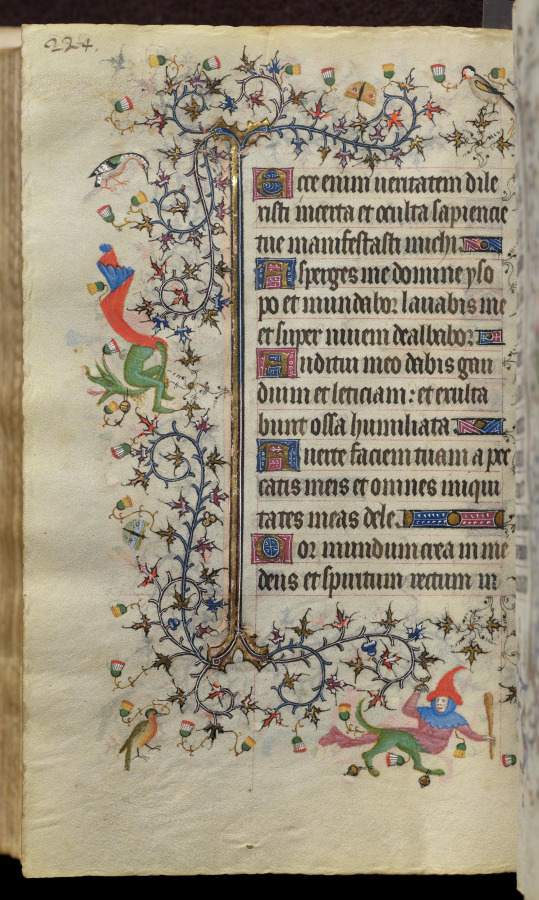 224.
Ecce enim ueritatem dile
xisti incerta et oculta sapiencie
tue manifestasti michi
Asperges me domine yso
po et mundabor lauabis me
et super niuem dealbabor
Auditui meo dabis gau
dium et leticiam: et exulta
bunt ossa humiliata
Auerte faciem tuam a pec
catis meis et omnes iniqui
tates meas dele
Cor mundum crea in me
deus et spiritum rectum in